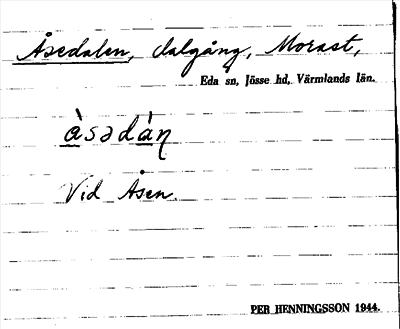 Åsedalen, dalgång, Morast,
Eda sn, Jösse hd, Värmlands län.
àsədáꞑ
Vid Åsen.
PER HENNINGSSON 1944.